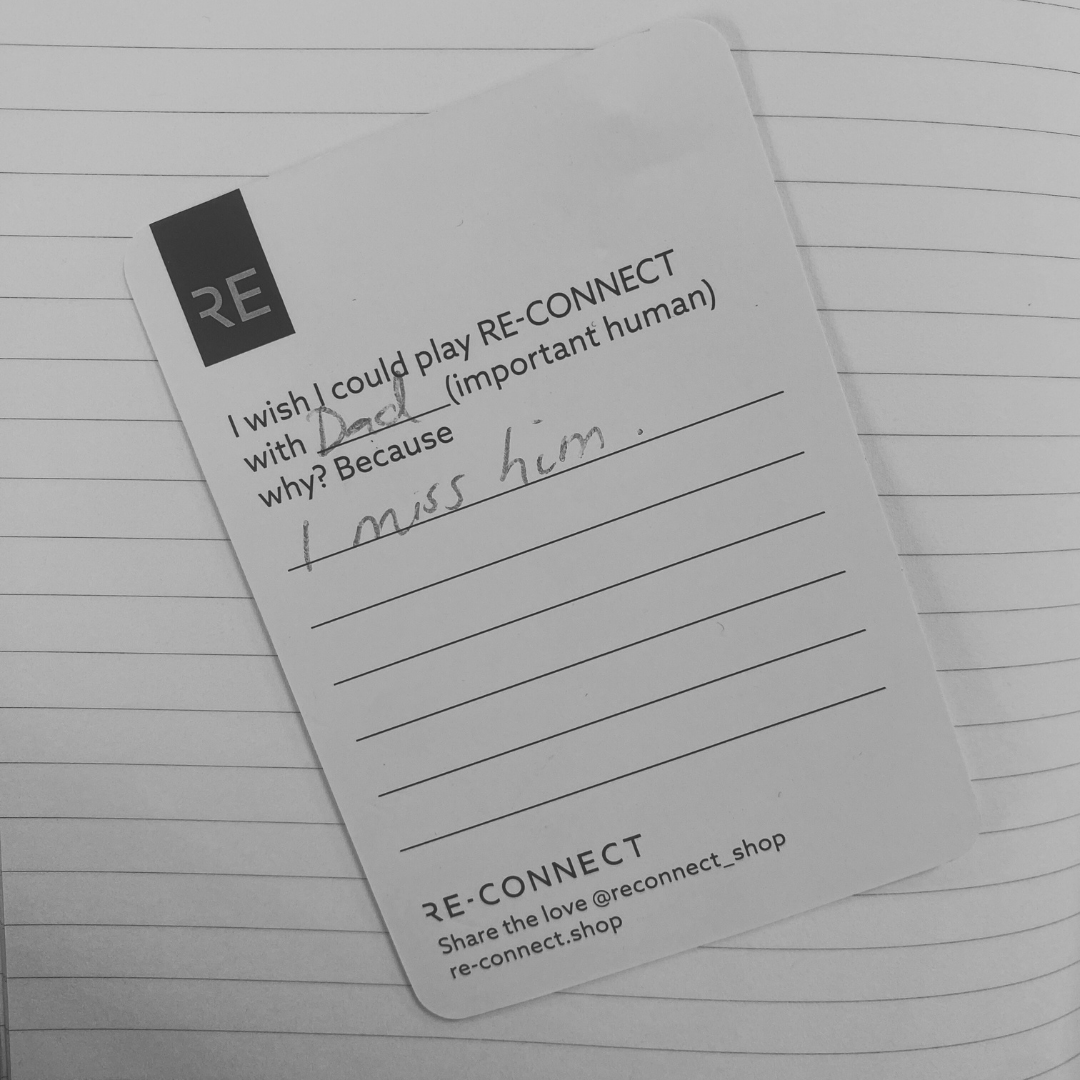 RE
I wish I could play RE-CONNECT
with Dad (important human)
why? Because
I miss him.
RE-CONNECT
Share the love @reconnect_shop
re-connect.shop